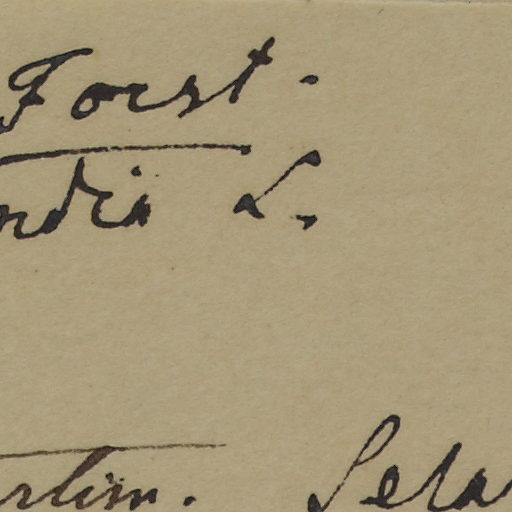 Forst.
ndia L.
rlim. Sela